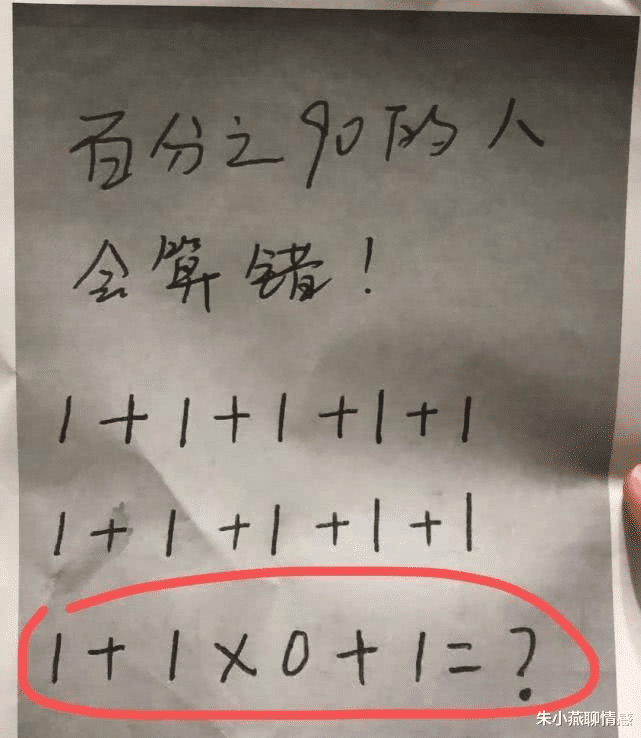 百分之90的人
会算错！
1+1+1+1+1
1+1+1+1+1
1+1×0+1=?
朱小燕聊情感